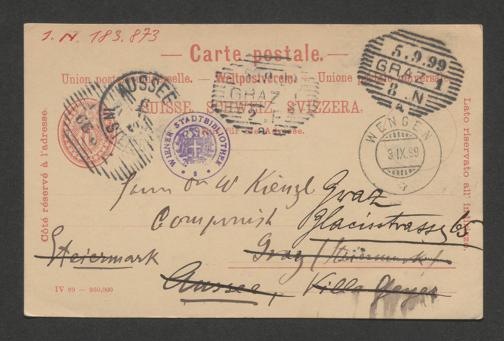 I.N. 183.873
Carte postale.
Union postale universelle. — Weltpostverein. — Unione postale universale.
SUISSE. SCHWEIZ. SVIZZERA.
Côté réservé à l'adresse.
Lato riservato all' indirizzo.
AUSSEE
GRAZ
5.9.99
GRAZ 1
8.N
WIENER STADTBIBLIOTHEK
WENGEN
3.IX.99
Herrn Dr W Kienzl Graz
Componist Glacisstrasse 65
Steiermark Graz (Steiermark)
Aussee, Villa
IV 99 — 950,000